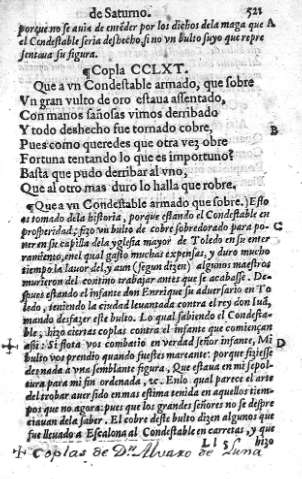 de Saturno. 521
porque no se auia de entēder por los dichos dela maga que A
el Condestable seria desbecho, si no vn bulto suyo que repre
sentaua su figura.
¶Copla CCLXT.
Que a vn Condestable armado, que sobre
Vn gran vulto de oro estaua assentado,
Con manos sañosas vimos derribado
Y todo deshecho fue tornado cobre, B
Pues como queredes que otra vez obre
Fortuna tentando lo que es importuno?
Basta que pudo derribar al vno,
Que al otro mas duro lo halla que robre.
¶Que a vn Condestable armado que sobre.) Esto
es tomado dela historia, porque estando el Condestable en
prosperidad; fizo vn bulto de cobre sobredorado para po- C
ner en su capilla dela yglesia mayor de Toledo en su enter
ramiento, en el qual gasto muchas expensas, y duro mucho
tiempo la lauor del, y aun (segun dizen) algunos maestros
murieron del contino trabajar antes que se acabasse. Des-
pues estando el infante don Enrrique su aduersario en To
ledo, teniendo la ciudad leuantada contra el rey don Iuā,
mando desfazer este bulto. Lo qual sabiendo el Condesta-
ble, hizo ciertas coplas contra el infante que comiençan
assi: Si flota vos combatio en verdad señor infante, Mi D
bulto vos prendio quando fuestes mareante: porque fiziesse
desnada a vna semblante figura, Que estaua en mi sepol-
tura para mi fin ordenada, &c. Enlo qual parece el arte
del trobar auer sido en mas estima tenida en aquellos tiem-
pos que no agora: pues que los grandes señores no se despre
ciauan dela saber. El cobre deste bulto dizen algunos que
fue lleuado a Escalona al Condestable en carretas, y que
Ll 5 hizo
Coplas de Dn. Alvaro de Luna